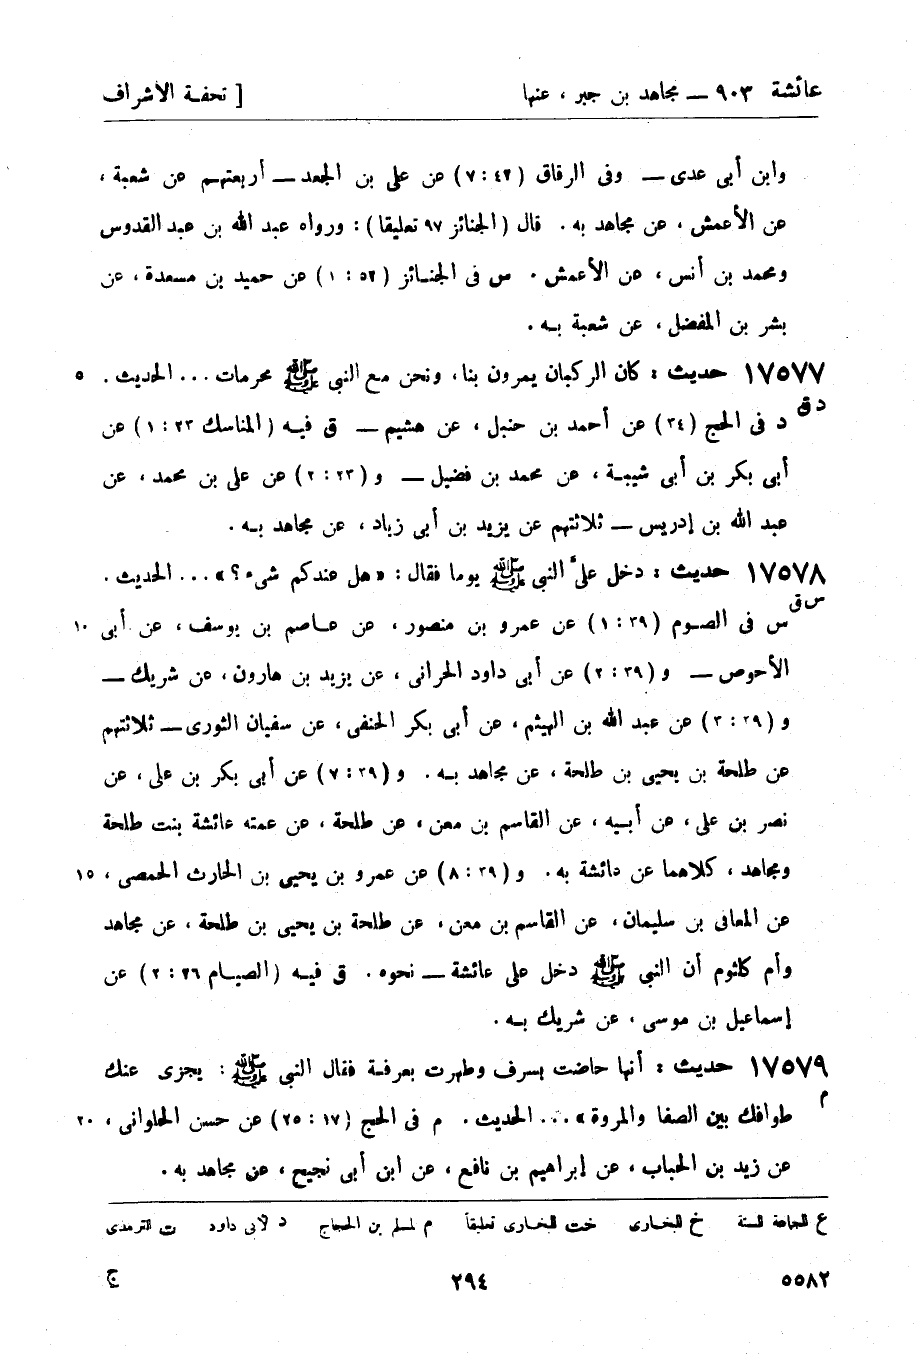 عائشة ٩٠٣ — مجاهد بن جبر ، عنها [ تحفة الأشراف
وابن أبى عدى — وفى الرقاق (٤٢ : ٧) عن على بن الجعد — أربعتهم عن شعبة ،
عن الأعمش ، عن مجاهد به . قال (الجنائز ٩٧ تعليقا) : ورواه عبد الله بن عبد القدوس
ومحمد بن أنس ، عن الأعمش . س فى الجنائز (٥٢ : ١) عن حميد بن مسعدة ، عن
بشر بن المفضل ، عن شعبة به .
١٧٥٧٧ حديث : كان الركبان يمرون بنا، ونحن مع النبى ﷺ محرمات ... الحديث . ٥
د ق د فى الحج (٣٤) عن أحمد بن حنبل ، عن هشيم — ق فيه (المناسك ٢٣ : ١) عن
أبى بكر بن أبى شيبة ، عن محمد بن فضيل — و (٢٣ : ٢) عن على بن محمد ، عن
عبد الله بن إدريس — ثلاثتهم عن يزيد بن أبى زياد ، عن مجاهد به .
١٧٥٧٨ حديث : دخل علىَّ النبى ﷺ يوما فقال : «هل عندكم شىء ؟» ... الحديث .
س ق س فى الصوم (٣٩ : ١) عن عمرو بن منصور ، عن عاصم بن يوسف ، عن أبى ١٠
الأحوص — و (٣٩ : ٢) عن أبى داود الحرانى ، عن يزيد بن هارون ، عن شريك —
و (٣٩ : ٣) عن عبد الله بن الهيثم ، عن أبى بكر الحنفى ، عن سفيان الثورى — ثلاثتهم
عن طلحة بن يحيى بن طلحة ، عن مجاهد به . و (٣٩ : ٧) عن أبى بكر بن على ، عن
نصر بن على ، عن أبيه ، عن القاسم بن معن ، عن طلحة ، عن عمته عائشة بنت طلحة
ومجاهد ، كلاهما عن دائشة به . و (٣٩ : ٨) عن عمرو بن يحيى بن الحارث الحمصى ، ١٥
عن المعافى بن سليمان ، عن القاسم بن معن ، عن طلحة بن يحيى بن طلحة ، عن مجاهد
وأم كلثوم أن النبى ﷺ دخل على عائشة — نحوه . ق فيه (الصيام ٢٦ : ٢) عن
إسماعيل بن موسى ، عن شريك به .
١٧٥٧٩ حديث : أنها حاضت بسرف وطهرت بعرفة فقال النبى ﷺ : يجزى عنك
م طوافك بين الصفا والمروة» ... الحديث . م فى الحج (١٧ : ٢٥) عن حسن الحلوانى ، ٢٠
عن زيد بن الحباب ، عن إبراهيم بن نافع ، عن ابن أبى نجيح ، عن مجاهد به .
ع للجماعة الستة خ للبخارى خت للبخارى تعليقاً م لمسلم بن الحجاج د لأبى داود ت للترمذى
٥٥٨٢ ٢٩٤ ج